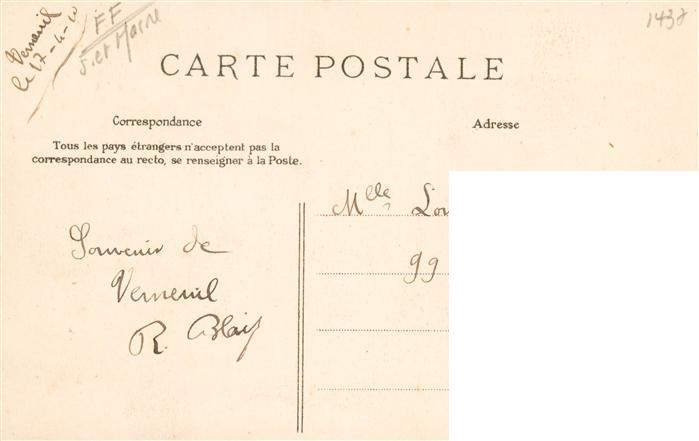 Verneuil
le 17-4-10
FF
S. et Marne
1438
CARTE POSTALE
Correspondance
Adresse
Tous les pays étrangers n'acceptent pas la
correspondance au recto, se renseigner à la Poste.
Mlle
99
Souvenir de
Verneuil
R.